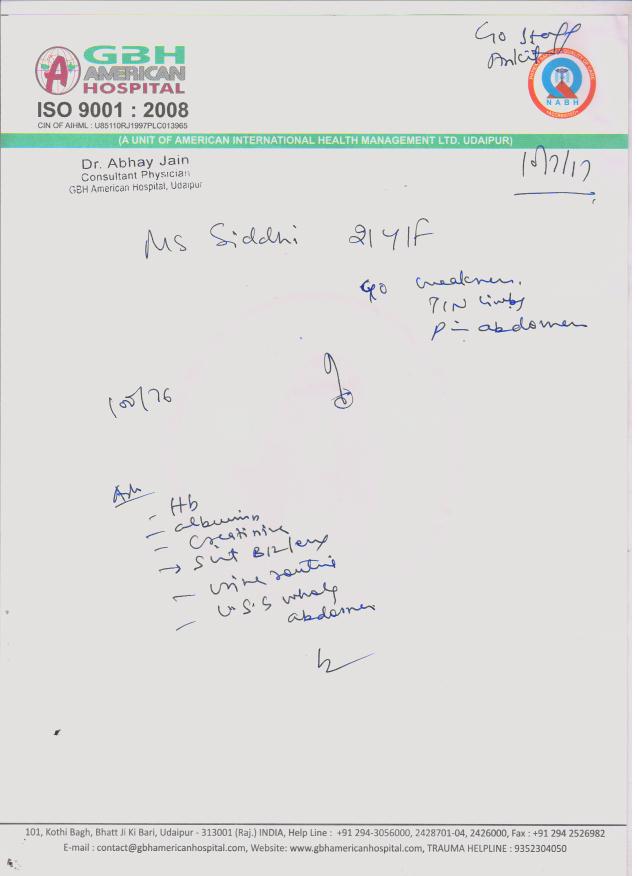 C/o Staff
Ankit
GBH
AMERICAN
HOSPITAL
ISO 9001 : 2008
CIN OF AIHML : U85110RJ1997PLC013965
NABH
(A UNIT OF AMERICAN INTERNATIONAL HEALTH MANAGEMENT LTD. UDAIPUR)
Dr. Abhay Jain
Consultant Physician
GBH American Hospital, Udaipur
10/7/17
Ms Siddhi 21Y/F
c/o weakness,
limbs
abdomen
100/76
Adv
- Hb
- albumin
- creatinine
→ B12
- urine routine
- U.S.S whole
abdomen
101, Kothi Bagh, Bhatt Ji Ki Bari, Udaipur - 313001 (Raj.) INDIA, Help Line : +91 294-3056000, 2428701-04, 2426000, Fax : +91 294 2526982
E-mail : contact@gbhamericanhospital.com, Website: www.gbhamericanhospital.com, TRAUMA HELPLINE : 9352304050